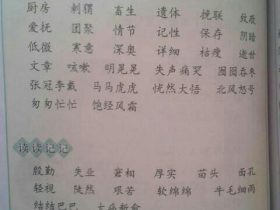 厨房 刺猬 畜生 遗体 挽联 致哀
爱抚 团聚 情节 记性 保存 阴暗
低微 寒意 深奥 详细 枯瘦 逝世
文章 咳嗽 明晃晃 失声痛哭 囫囵吞枣
张冠李戴 马马虎虎 恍然大悟 北风怒号
匆匆忙忙 饱经风霜
读读记记
殷勤 失业 窘相 厚实 苗头 面孔
轻视 陡然 艰苦 软绵绵 牛毛细雨
结结巴巴